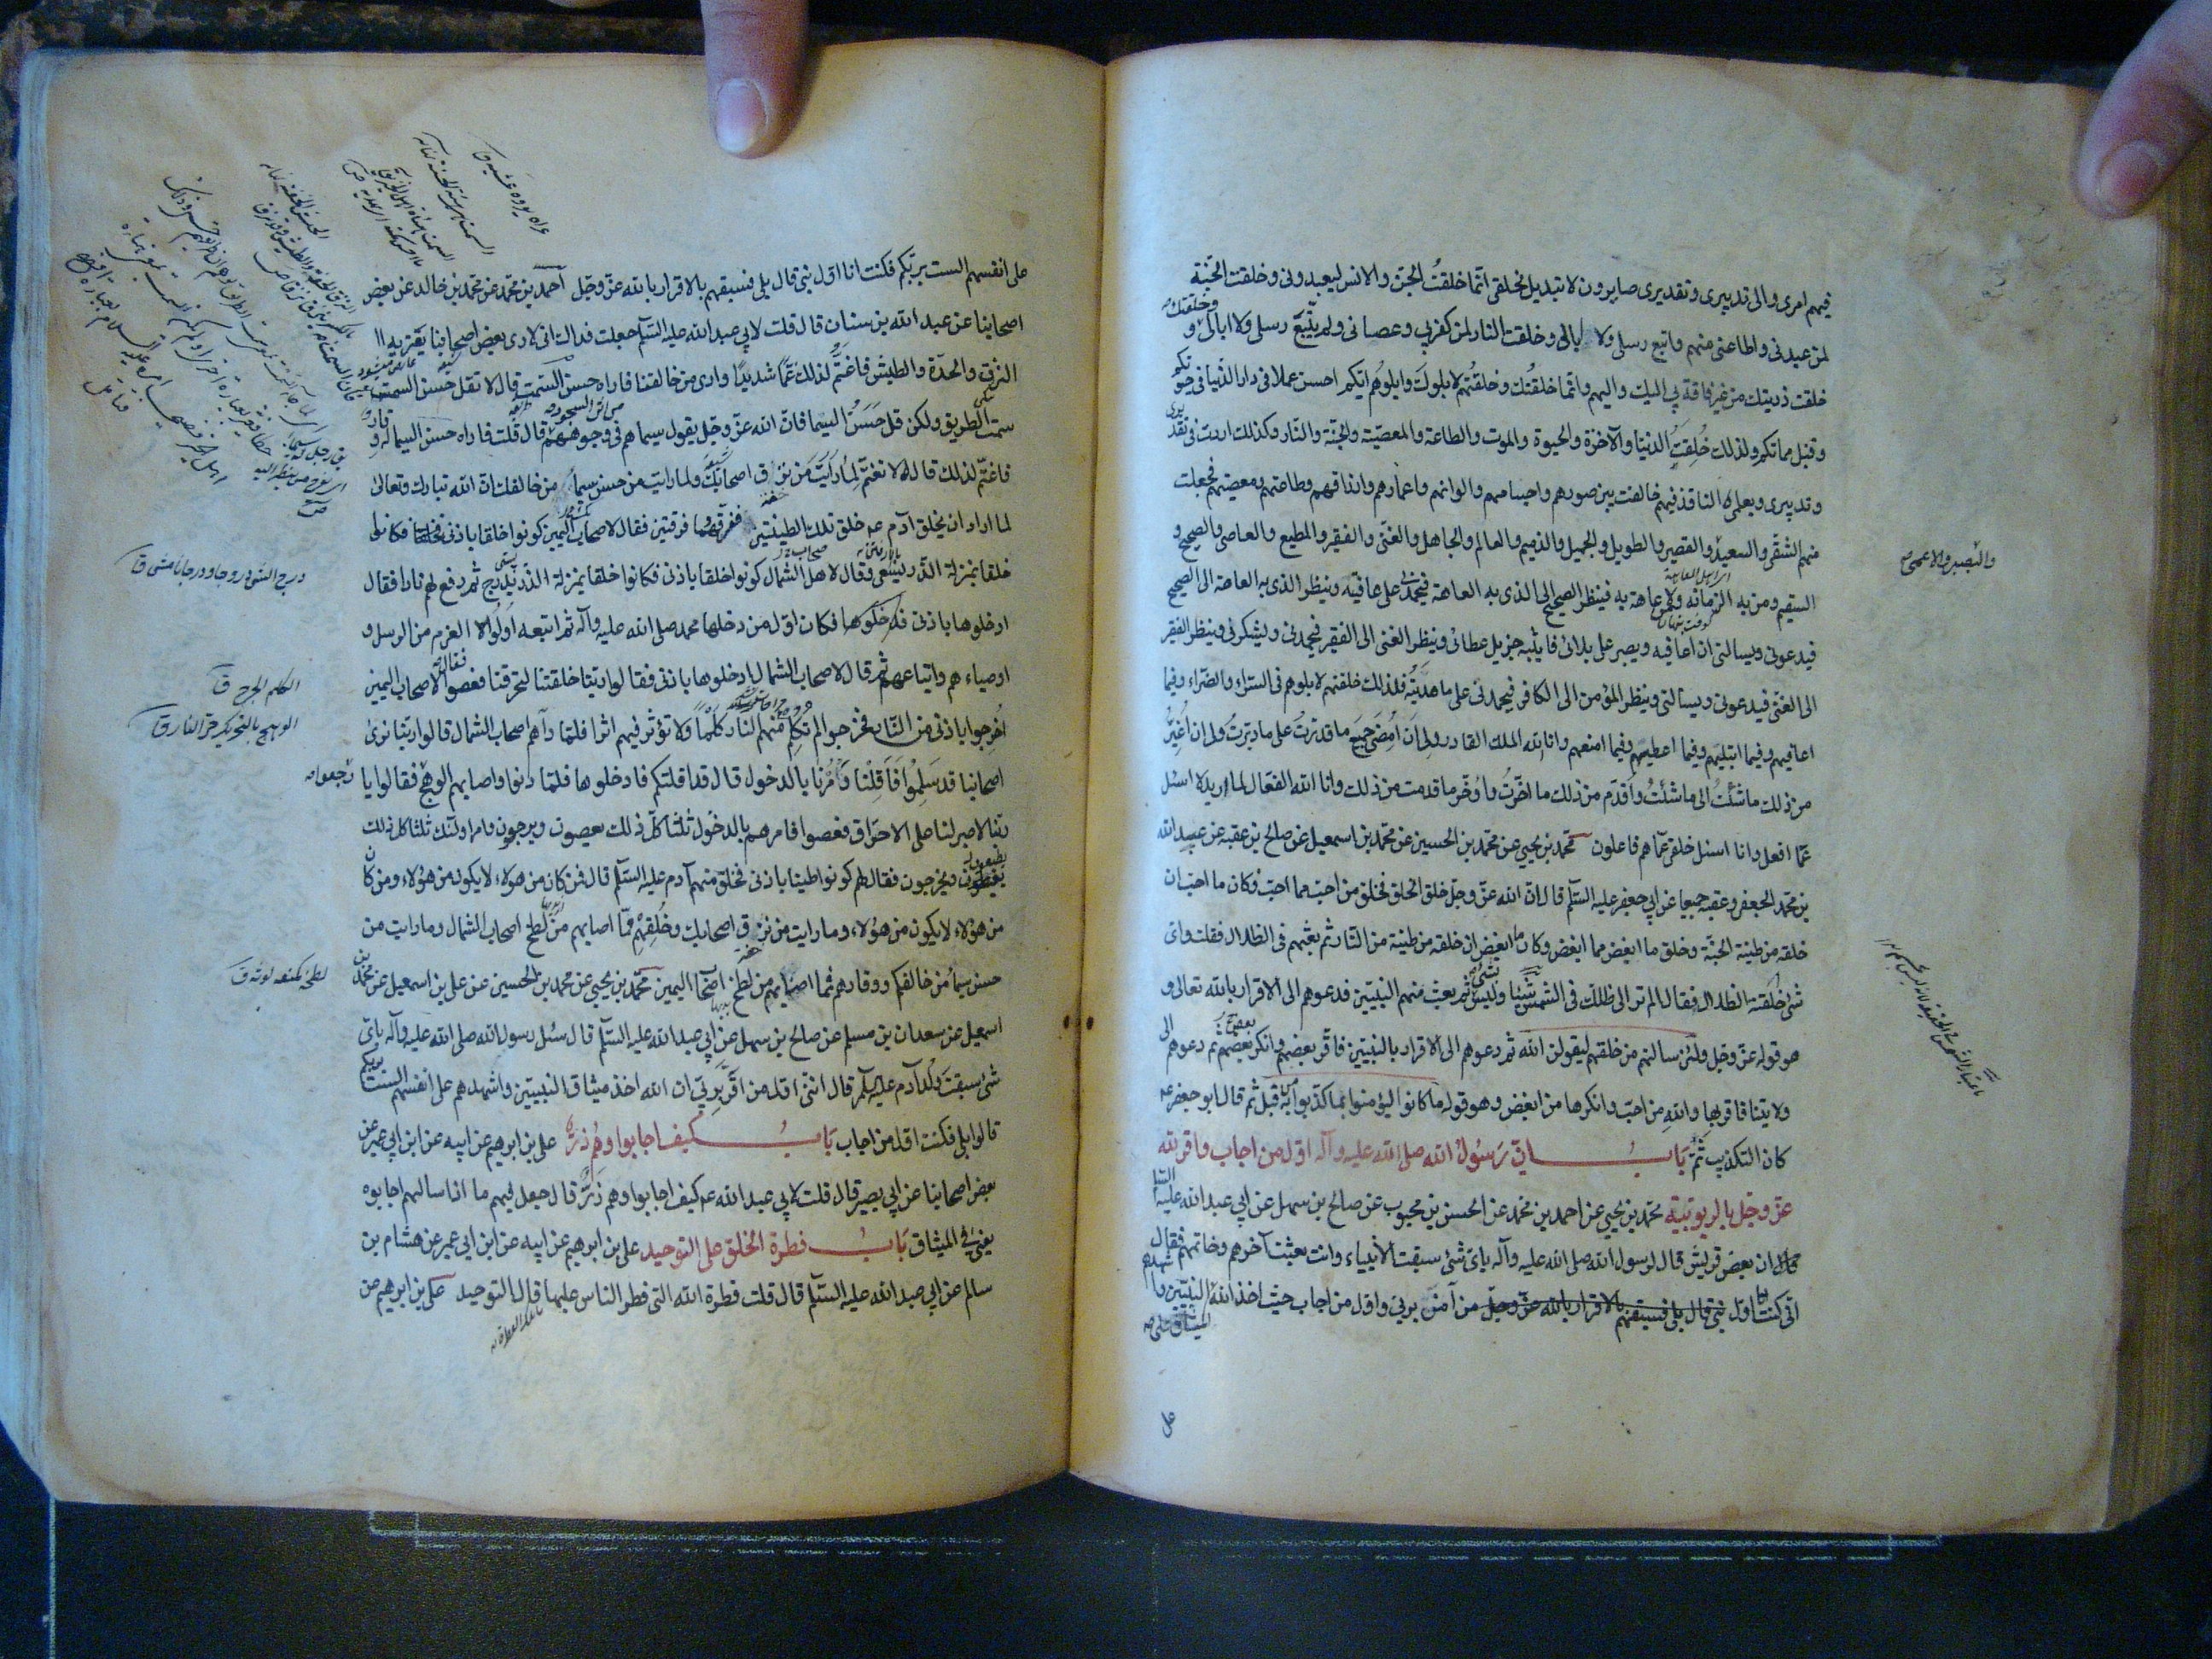 فيهم امرى والى تدبيرى وتقديرى صايرون لا تبديل لخلقى انما خلقتُ الجن والانس ليعبدونى وخلقت الجنّة
لمن عبدنى واطاعنى منهم واتبع رسلى ولا ابالى وخلقت النار لمن كفر بي وعصانى ولم يتّبع رسلى ولا ابالى وخلقتك و
خلقت ذريتك من غير فاقة بي اليك واليهم وانّما خلقتُك وخلقتُهم لابلوكَ وابلوهُم ايّكم احسن عملا فى دار الدّنيا فى حيوتكم
وقبل مماتكم ولذلك خُلِقتِ الدنيا والآخرة والحيوة والموت والطاعة والمعصيّة والجنّة والنّار وكذلك اردت فى تقديرى
وتدبيرى وبعلمى النافذ فيهم خالفت بين صورهم واجسامهم والوانهم واعمارهم وارزاقهم وطاعتهم ومعصيتهم فجعلت
منهم الشقّى والسعيد والقصير والطويل والجميل والذميم والعالم والجاهل والغنّى والفقير والمطيع والعاصى والصحيح و
والبصير والاعمى
السقيم ومن به الزمانة ومن لا عاهة به فينظر الصحيح الى الذى به العاهة فيحمدنى على عافيته وينظر الذى به العاهة الى الصحيح
فيدعونى ويسالنى ان اعافيه ويصبر على بلائى فاثيبه جزيل عطائى وينظر الغنى الى الفقير فيحمدنى ويشكرنى وينظر الفقير
الى الغنّى فيدعونى ويسالنى وينظر المؤمن الى الكافر فيحمدنى على ما هديتُه فلذلك خلقتهم لابلوهم فى السراء والضّراء وفيما
اعافيهم وفيما ابتليهم وفيما اعطيهم وفيما امنعهم وانا الله الملك القادر ولى اَن اُمضىَ جميعَ ما قدّرتُ على ما دبرتُ ولى ان اُغيّر
من ذلك ما شئتُ الى ما شئتُ واُقدّم من ذلك ما اخّرتُ واُوخّر ما قدمت من ذلك وانا الله الفعّال لما اريد لا اسئل
عمّا افعل وانا اسئل خلقى عمّا هم فاعلون محمّد بن يحيى عن محمّد بن الحسين عن محمّد بن اسمعيل عن صالح بن عقبه عن عبد الله
بن محمّد الجعفر وعقبة جميعا عن ابي جعفر عليه السّلم قال انّ الله عزّ وجلّ خلق الخلق فخلق من احبّ مما احبّ وكان ما احبّ ان
خلقه من طينة الجنّة وخلق ما ابغض مما ابغض وكان ما ابغض ان خلقه من طينة من النّار ثم بعثهم فى الظلال فقلت واى
شئ الظلال فقال الم تر الى ظلك فى الشمس شيئا وليس بشئ ثم بعث منهم النبيّين فدعوهم الى الاقرار بالله تعالى و
هو قوله عزّ وجل ولئن سالتهم من خلقهم ليقولن الله ثم دعوهم الى الاقرار بالنبيّين فاقّر بعضهم وانكر بعضهم ثم دعوهم الى
ولايتنا فاقر بها والله من احبّ وانكرها من ابغض وهو قوله ما كانوا ليؤمنوا بما كذّبوا به من قبل ثم قال ابو جعفر
كان التكذيب ثَمّ بَابُ ان رَسُولُ الله صلى الله عليه وآله اوّل من اجاب واقر لله
عزّ وجلّ بالربوبيّة محمّد بن يحيى عن احمد بن محمد عن الحسن بن محبوب عن صالح بن سهل عن ابي عبد الله عليه السلم
ان بعض قريش قال لرسول الله صلى الله عليه وآله باى شئ سبقت الانبياء وانت بعثت آخرهم وخاتمهم فقال
انى كنت اوّل من آمن بربى واوّل من اجاب حيث اخذ الله ميثاق النبيّين واشهدهم
على
على انفسهم الست بربّكم فكنت انا اوّل نبى قال بلى فسبقتهم بالاقرار بالله عزّ وجلّ احمد بن محمّد عن محمّد بن خالد عن بعض
اصحابنا عن عبد الله بن سنان قال قلت لابي عبد الله عليه السّلم جعلت فداك انى لارى بعض اصحابنا يعتريه
النزق والحدّة والطيش فاغتمّ لذلك غمّا شديدا وارى من خالفنا فاراه حسن السّمت قال لا تقل حسن السمت فان
سمت الطريق ولكن قل حَسَنُ السّيما فان الله عزّ وجلّ يقول سيماهم فى وجوههم من اثر السجود قال قلت فاراه حسن السيما له وقار
فاغتمّ لذلك قال لا تغتمّ لما رايت من نزق اصحابك ولما رايت من حسن سيما من خالفك ان الله تبارك وتعالى
لما اراد ان يخلق آدم خلق تلك الطينتين ففرّقهما فرقتين فقال لاصحاب اليمين كونوا خلقا باذنى فكانوا
خلقا بمنزلة الذّر يسعى وقال لاهل الشمال كونوا خلقا باذنى فكانوا خلقا بمنزلة الذّر يدرج ثم رفع لهم نارا فقال
درج الشئ دروجا ودرجانا مشى ق
ادخلوها باذنى فكان اوّل من دخلها محمد صلى الله عليه وآله ثم اتبعه اولوا العزم من الرسل و
اوصياءهم واتباعهم ثم قال لاصحاب الشمال ادخلوها باذنى فقالوا ربّنا خلقتنا لتحرقنا فعصوا فقال لاصحاب اليمين
الكلم الجرح ق
اُخرجوا باذنى من النّار فخرجوا لم تَكلِم منهم النار كلما ولا تؤثر فيهم اثرا فلمّا رآهم اصحاب الشمال قالوا ربّنا نرى
الوهج بالتحريك حرّ النار ق
اصحابنا قد سَلِموا فَاَقِلْنا وَمُرْنا بالدخول قال قد اقلتكم فادخلوها فلمّا دنوا واصابهم الوهج رجعوا فقالوا يا
ربّنا لا صبر لنا على الاحتراق فعصوا فامرهم بالدخُول ثلثا كلّ ذلك يعصون ويرجعون وامر اولئك ثلثا كل ذلك
يطيعون ويخرجون فقال لهم كونوا طينا باذنى فخلق منهم آدم عليه السّلم قال فمن كان من هؤلاء لا يكون من هؤلاء ومن كان
من هؤلاء لا يكون من هؤلاء وما رايت من نزق اصحابك وخُلقِهِم فمّا اصابهم من لطخ اصحاب الشمال وما رايت من
حسن سيما من خالفكم ووقارهم فمما اصابهم من لطخ اصحاب اليمين محمّد بن يحيى عن محمد بن الحسين عن على بن اسمعيل عن محمّد بن
لطخه كمنعه لوثه ق
اسمعيل عن سعدان بن مسلم عن صالح بن سهل عن ابي عبد الله عليه السّلم قال سئل رسول الله صلى الله عليه وآله باىّ
شئ سبقتَ وُلدَ آدم قال انّنى اوّل من اقرّ بربّي ان الله اخذ ميثاق النبيّين واشهدهم على انفسهم الست بربكم
قالوا بلى فكنت اوّل من اجاب بَابُ كيف اجابوا وهُم ذرّ على بن ابرهيم عن ابيه عن ابن ابي عمير عن
بعض اصحابنا عن ابي بصير قال قلت لابي عبد الله كيف اجابوا وهم ذَرّ قال جعل فيهم ما اذا سالهم اجابوه
يعنى فى الميثاق بَابُ فطرة الخلق على التوحيد على بن ابرهيم عن ابيه عن ابن ابي عمير عن هشام بن
سالم عن ابي عبد الله عليه السّلم قال قلت فطرة الله التى فطر الناس عليها قال التوحيد على بن ابرهيم عن